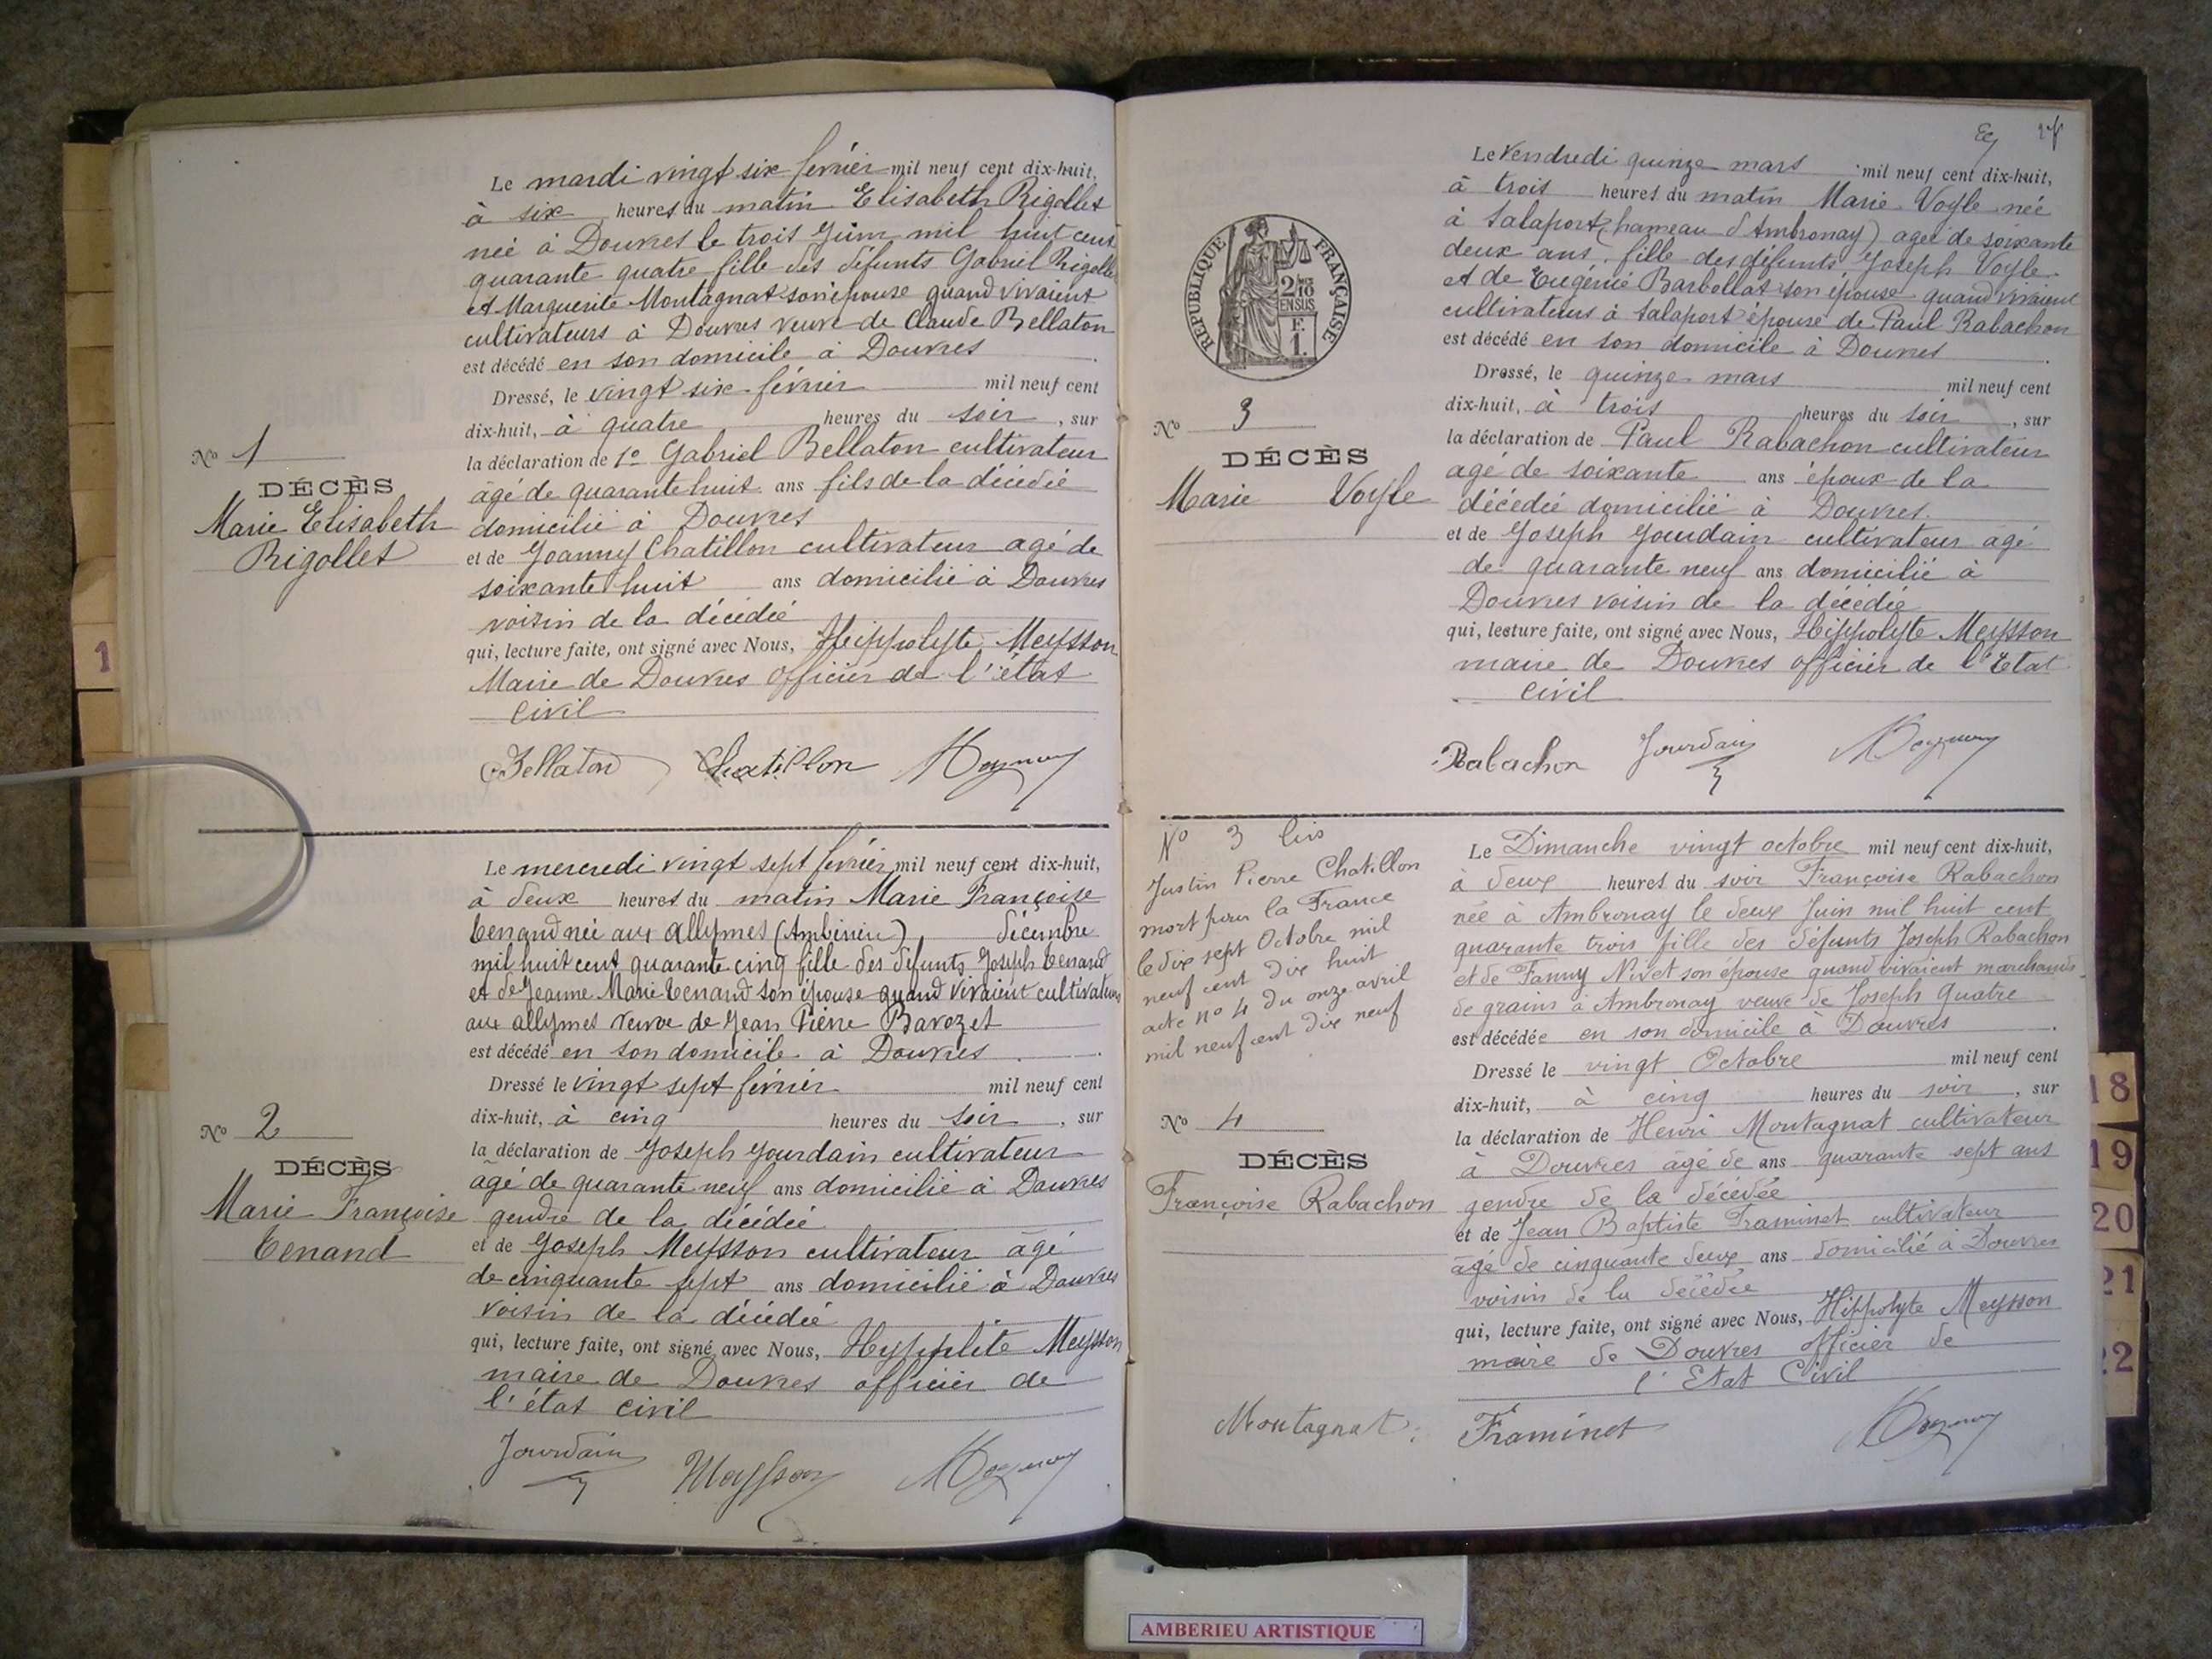 Le mardi vingt six février mil neuf cent dix-huit,
à six heures du matin Elisabeth Rigollet
née à Douvres le trois Juin mil huit cent
quarante quatre fille des défunts Gabriel Rigollet
et Marguerite Montagnat son épouse quand vivaient
cultivateurs à Douvres veuve de Claude Bellaton
est décédé en son domicile à Douvres
Dressé, le vingt six février mil neuf cent
dix-huit, à quatre heures du soir, sur
la déclaration de 1º Gabriel Bellaton cultivateur
âgé de quarante huit ans fils de la décédée
domicilié à Douvres
et de Joanny Chatillon cultivateur agé de
soixante huit ans domicilié à Douvres
voisin de la décédée
qui, lecture faite, ont signé avec Nous, Heippolyte Meysson
Maire de Douvres officier de l'état
civil
Nº 1
DÉCÈS
Marie Elisabeth
Rigollet
Bellaton Chatillon
1
Le mercredi vingt sept février mil neuf cent dix-huit,
à deux heures du matin Marie Françoise
Tenand née aux Allymes (Ambérieu) décembre
mil huit cent quarante cinq fille des défunts Joseph Tenand
et de Jeanne Marie Tenand son épouse quand vivaient cultivateurs
aux allymes veuve de Jean Pierre Barozet
est décédé en son domicile à Douvres
Dressé le vingt sept février mil neuf cent
dix-huit, à cinq heures du soir, sur
la déclaration de Joseph Jourdain cultivateur
agé de quarante neuf ans domicilié à Douvres
gendre de la décédée
et de Joseph Meysson cultivateur agé
de cinquante sept ans domicilié à Douvres
voisin de la décédée
qui, lecture faite, ont signé avec Nous, Heyppolite Meysson
maire de Douvres officier de
l'état civil
Nº 2
DÉCÈS
Marie Françoise
Tenand
Jourdain Meysson
Le Vendredi quinze mars mil neuf cent dix-huit,
à trois heures du matin Marie Voyle née
à Salaport (hameau d'Ambronay) agée de soixante
deux ans, fille des défunts Joseph Voyle
et de Eugénie Barbollat son épouse quand vivaient
cultivateurs à Salaport épouse de Paul Rabachon
est décédé en son domicile à Douvres
Dressé, le quinze mars mil neuf cent
dix-huit, à trois heures du soir, sur
la déclaration de Paul Rabachon cultivateur
agé de soixante ans époux de la
décédée domicilié à Douvres
et de Joseph Jourdain cultivateur agé
de quarante neuf ans domicilié à
Douvres voisin de la décédée
qui, lecture faite, ont signé avec Nous, Hippolyte Meysson
maire de Douvres officier de l'Etat
civil
RÉPUBLIQUE FRANÇAISE
2/10
EN SUS
F.
1.
Nº 3
DÉCÈS
Marie Voyle
Rabachon Jourdain
Nº 3 bis
Justin Pierre Chatillon
mort pour la France
le dix sept Octobre mil
neuf cent dix huit
acte nº 4 du onze avril
mil neuf cent dix neuf
Le Dimanche vingt octobre mil neuf cent dix-huit,
à deux heures du soir Françoise Rabachon
née à Ambronay le deux Juin mil huit cent
quarante trois fille des défunts Joseph Rabachon
et de Fanny Nivet son épouse quand vivaient marchands
de grains à Ambronay veuve de Joseph Quatre
est décédée en son domicile à Douvres
Dressé le vingt Octobre mil neuf cent
dix-huit, à cinq heures du soir, sur
la déclaration de Henri Montagnat cultivateur
à Douvres âgé de ans quarante sept ans
gendre de la décédée
et de Jean Baptiste Framinet cultivateur
âgé de cinquante deux ans domicilié à Douvres
voisin de la décédée
qui, lecture faite, ont signé avec Nous, Hippolyte Meysson
maire de Douvres officier de
l'Etat Civil
Nº 4
DÉCÈS
Françoise Rabachon
Montagnat Framinet
18
19
20
21
22
AMBERIEU ARTISTIQUE